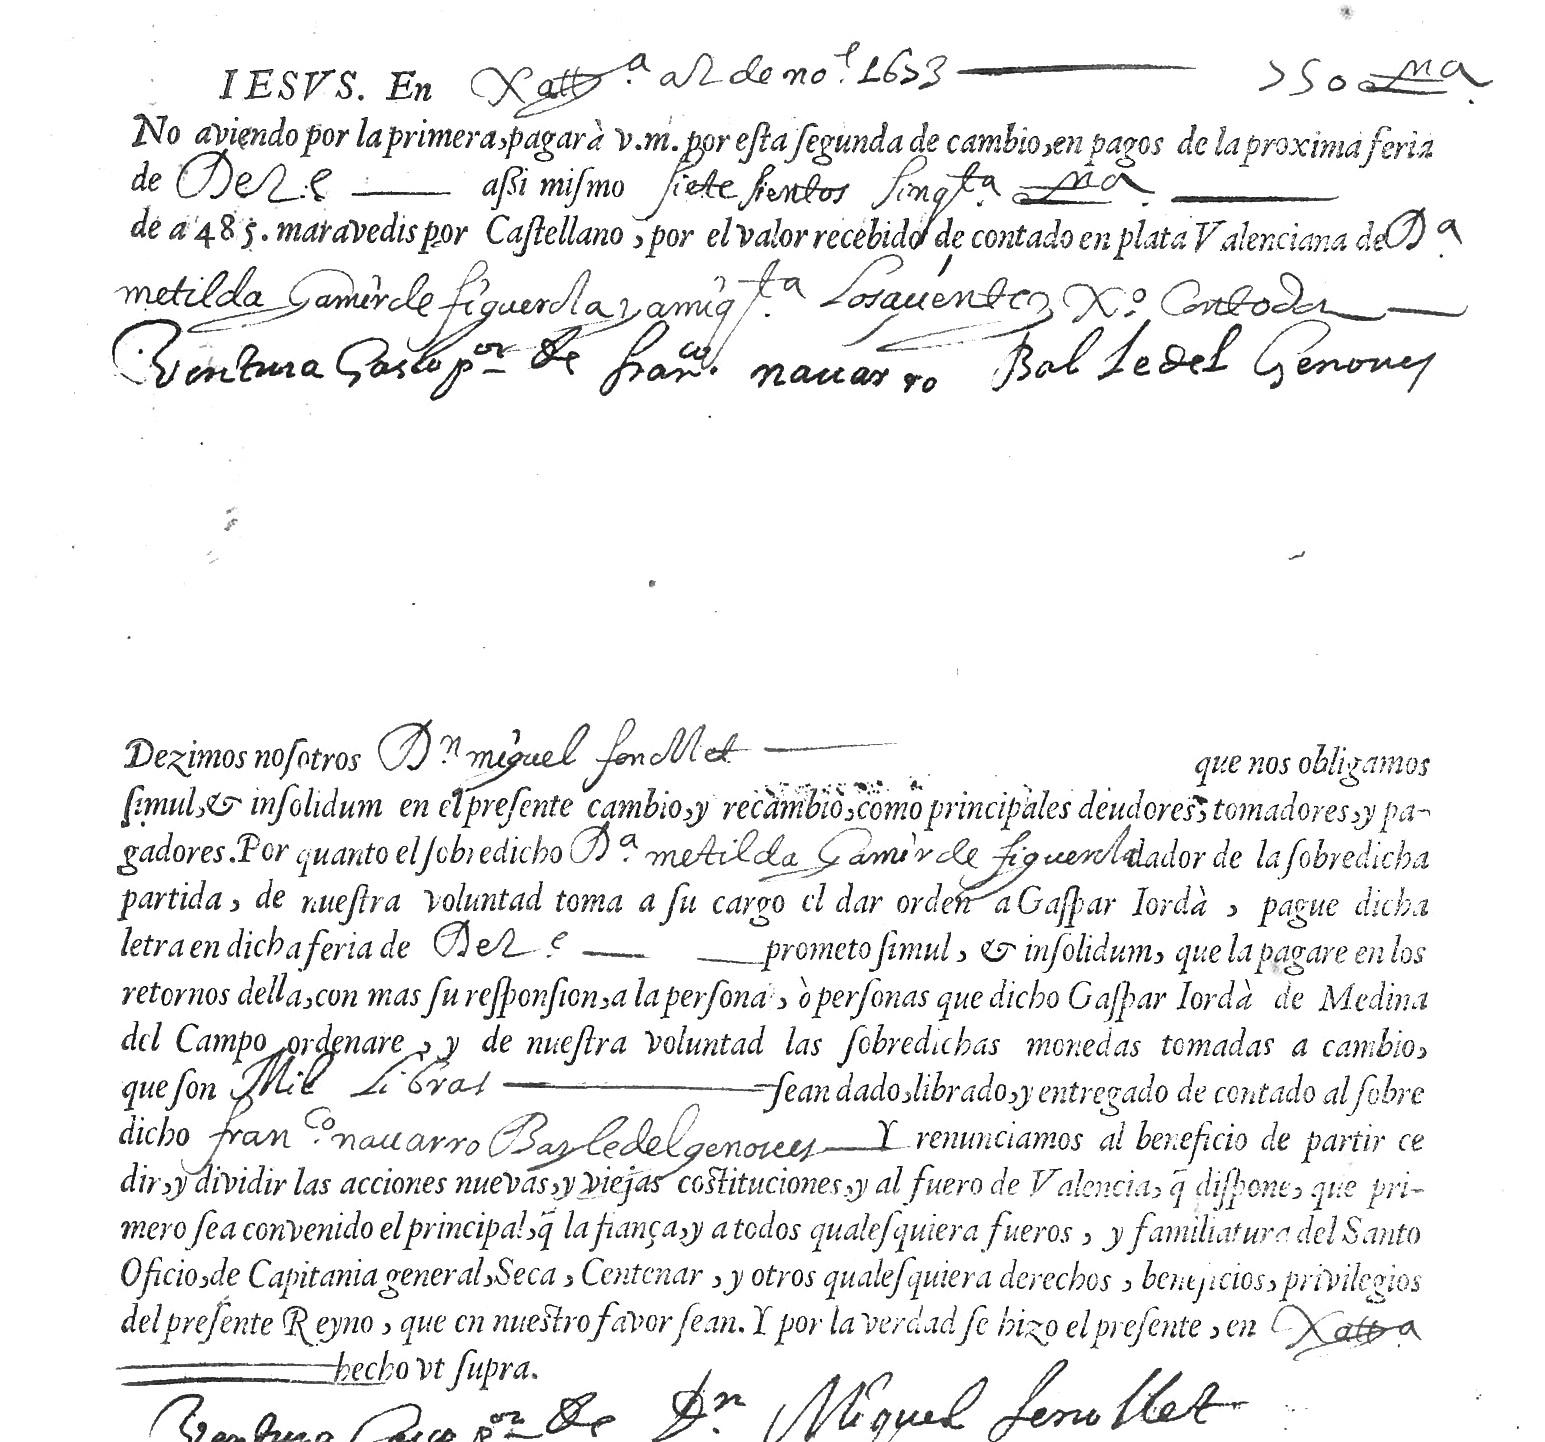 IESVS. En Xatt.ª a 2 de no.e 1653 750 mª.
No aviendo por la primera, pagarà v.m. por esta segunda de cambio, en pagos de la proxima feria
de Dez.e assi mismo siete sientos sinq.ta mª.
de a 485. maravedis por Castellano, por el valor recebido de contado en plata Valenciana de Dª.
metilda Gamir de figuerola y amiq.ta Losauentez Xº. Contoda
Ventura Gasco p.or de fran.co nauarro Bal le del Genoues
Dezimos nosotros D.n miguel fenollet que nos obligamos
simul, & insolidum en el presente cambio, y recambio, como principales deudores, tomadores, y pa-
gadores. Por quanto el sobredicho Dª. metilda Gamir de figuerola dador de la sobredicha
partida, de nuestra voluntad toma a su cargo el dar orden a Gaspar Iordà, pague dicha
letra en dicha feria de Dez.e prometo simul, & insolidum, que la pagare en los
retornos della, con mas su responsion, a la persona, ò personas que dicho Gaspar Iordà de Medina
del Campo ordenare, y de nuestra voluntad las sobredichas monedas tomadas a cambio,
que son Mil Libras sean dado, librado, y entregado de contado al sobre
dicho fran.co nauarro Bayle del genoues Y renunciamos al beneficio de partir ce
dir, y dividir las acciones nuevas, y viejas cõstituciones, y al fuero de Valencia, q̃ dispone, que pri-
mero sea convenido el principal, q̃ la fiança, y a todos qualesquiera fueros, y familiatura del Santo
Oficio, de Capitania general, Seca, Centenar, y otros qualesquiera derechos, beneficios, privilegios
del presente Reyno, que en nuestro favor sean. Y por la verdad se hizo el presente, en Xattª
hecho vt supra.
Ventura Gasco p.or de D.n Miguel fenollet